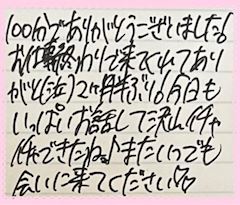 100分でありがとうございました!!
お仕事終わりで来てくれてあり
がと(泣)2ヶ月半ぶり!!今日も
いっぱいお話して沢山イチャ
イチャできたね♪またいつでも
会いに来てください♡♡